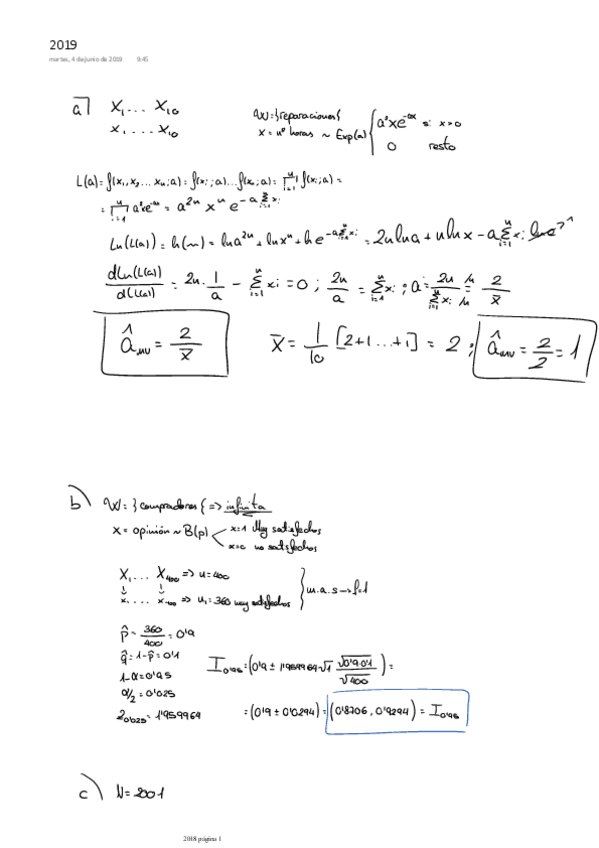 2019
martes, 4 de junio de 2019 9:45
a) X₁... X₁₀
x₁... x₁₀
W = {reparaciones}
X = nº horas ~ Exp(a) { a²xe^-ax si x>0
0 resto
L(a) = f(x₁, x₂, ... xₙ; a) = f(x₁; a)...f(xₙ; a) = ∏ᵢ₌₁ⁿ f(xᵢ; a) =
= ∏ᵢ₌₁ⁿ a²xe^-ax = a²ⁿ xⁿ e^-a∑ᵢ₌₁ⁿ xᵢ
Ln(L(a)) = ln(~) = ln a²ⁿ + ln xⁿ + ln e^-a∑ᵢ₌₁ⁿ xᵢ = 2n ln a + n ln x - a ∑ᵢ₌₁ⁿ xᵢ · ln e ↗1
dLn(L(a)) / d(L(a)) = 2n · 1/a - ∑ᵢ₌₁ⁿ xᵢ = 0 ; 2n/a = ∑ᵢ₌₁ⁿ xᵢ ; a = 2n / ∑ᵢ₌₁ⁿ xᵢ = 2 / x̄
â_mv = 2 / x̄
x̄ = 1/10 [2+1...+1] = 2 ; â_mv = 2/2 = 1
b) W = {compradores} => infinita
X = opinión ~ B(p) < x=1 Muy satisfechos
x=0 no satisfechos
X₁... X₄₀₀ => n = 400
x₁... x₄₀₀ => n₁ = 360 muy satisfechos } m.a.s → f=1
p̂ = 360/400 = 0'9
q̂ = 1-p̂ = 0'1
1-α = 0'95
α/2 = 0'025
z₀'₀₂₅ = 1'959964
I₀'₉₅ = (0'9 ± 1'959964 √1 √0'9·0'1 / √400) =
= (0'9 ± 0'0294) = (0'8706, 0'9294) = I₀'₉₅
c) N = 2001
2018 página 1